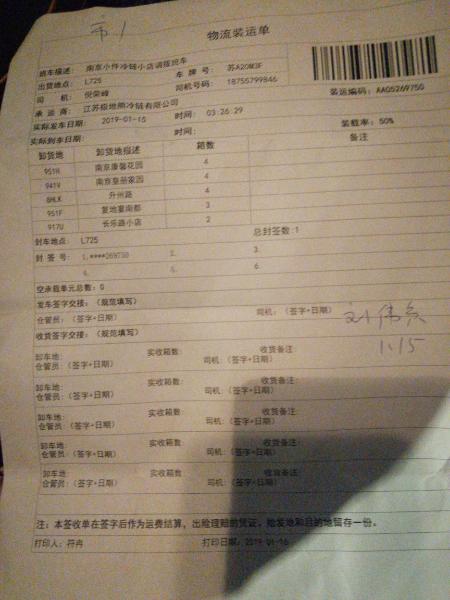 市1
物流装运单
班车描述: 南京小件冷链小店调拨班车
出货地点: L725 车 牌 号: 苏A20M3F
司 机: 倪荣峰 司机号码: 18755799846
承 运 商: 江苏极地熊冷链有限公司 装运编码: AA05269750
实际发车日期: 2019-01-15 时间: 03:26:29
实际到车日期: 时间: 装载率: 50%
卸货地 卸货地描述 箱数 备注
951H 南京康馨花园 4
941V 南京皇册家园 4
8HLX 升州路 4
951F 复地宴南都 3
917U 长乐路小店 2
封车地点: L725 总封签数:1
封 签 号: 1.****269750 2. 3.
4. 5. 6.
空承载单元总数: 0
发车签字交接: (规范填写)
仓管员: (签字+日期) 司机: (签字+日期) 1.15
收货签字交接: (规范填写)
卸车地: 实收箱数: 收货备注:
仓管员: (签字+日期) 司机: (签字+日期)
卸车地: 实收箱数: 收货备注:
仓管员: (签字+日期) 司机: (签字+日期)
卸车地: 实收箱数: 收货备注:
仓管员: (签字+日期) 司机: (签字+日期)
卸车地: 实收箱数: 收货备注:
仓管员: (签字+日期) 司机: (签字+日期)
卸车地: 实收箱数: 收货备注:
仓管员: (签字+日期) 司机: (签字+日期)
注: 本签收单在签字后作为运费结算, 出险理赔的凭证, 始发地和目的地留存一份。
打印人: 符冉 打印日期: 2019-01-16